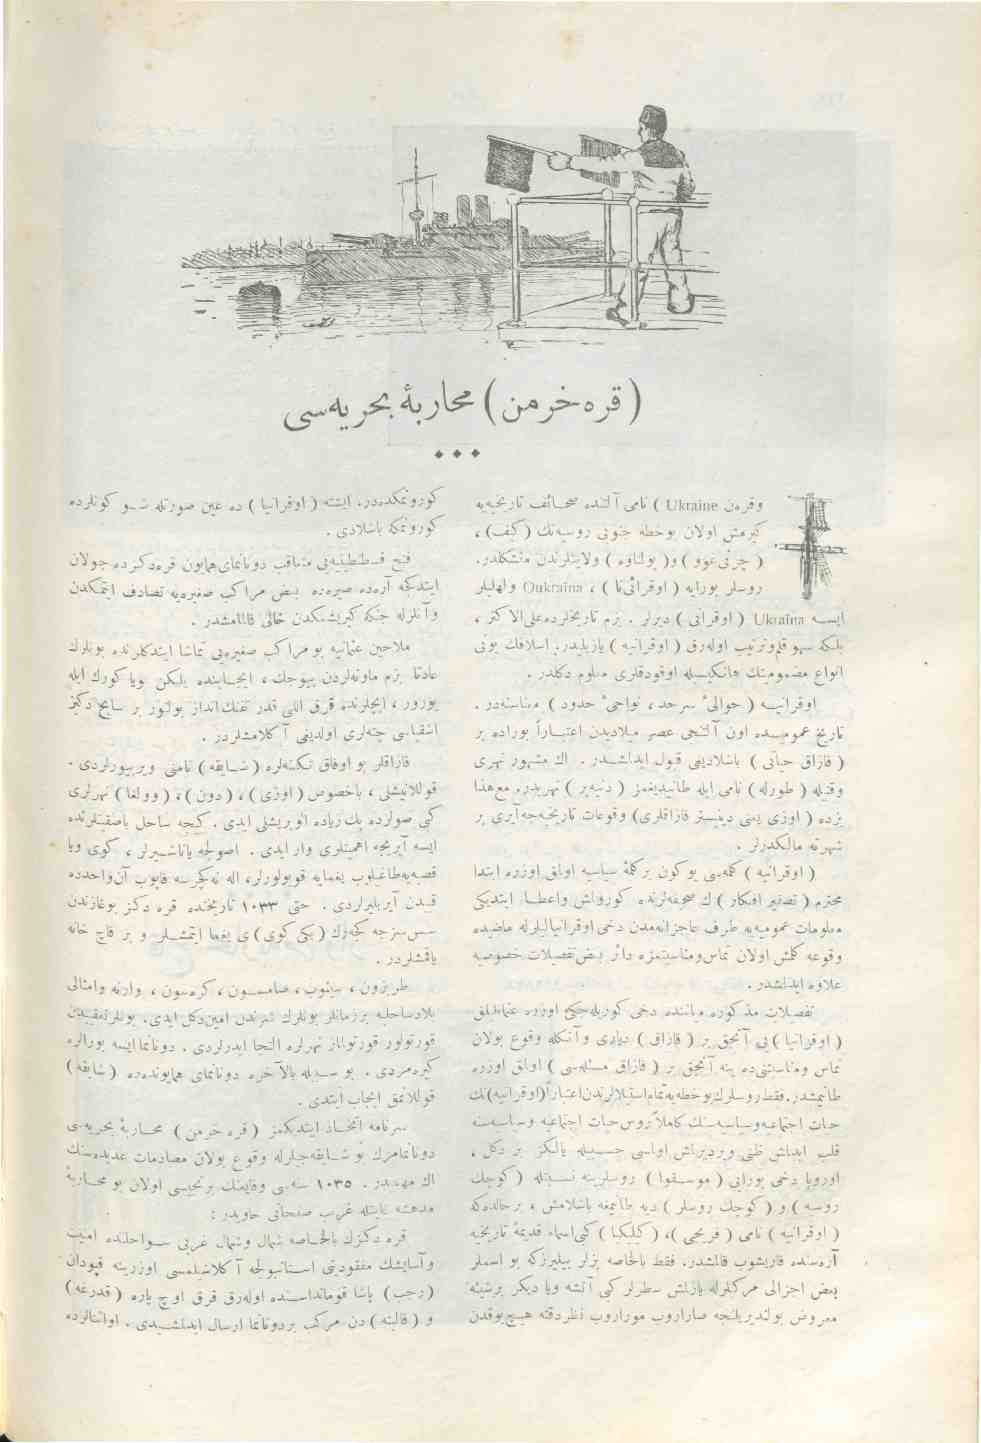 ( قره خرمن ) محاربهٔ بحریه‌سی
وقره‌ن Ukraine ) نامی آلتنده صحائف تاریخیه‌یه
کیرمش اولان بوخطه جنوبی روسیه‌نك ( کیف ) ،
( چرنی‌غوو ) و( پولتاوه ) ولایتلرندن متشکلدر.
روسلر بورایه ( اوقرائی‌نا ) ، Oukraïna ولهلیلر
ایسه Ukraïna ( اوقراینی ) دیرلر . بزم تاریخلرده‌علی‌الاکثر ،
بلکه سهو قلم‌وترتیب اوله‌رق ( اوقرانیه ) یازیلیدر. اسلافك بونی
انواع مضمومه‌نك هانکیسیله اوقودقلری معلوم دکلدر .
اوقرانیه ( حوالئ سرحد ، نواحئ حدود ) معناسنه‌در .
تاریخ عمومیده اون آلتنجی عصر میلادیدن اعتباراً بوراده بر
( قازاق حیاتی ) باشلادیغی قبول ایدلمشدر . اك مشهور نهری
وقتیله ( طورله ) نامی ایله طانیدیغمز ( دنیه‌پر ) نهریدر. مع‌هذا
بزده ( اوزی یعنی دینیستر قازاقلری) وقوعات تاریخیه‌جه آیری بر
شهرته مالکدرلر .
( اوقرانیه ) کلمه‌سی بوکون برکلمهٔ سیاسیه اولمق اوزره ابتدا
محترم ( تصویر افکار ) ك صحیفه‌لرنده کورونمش واعطا ایتدیکی
معلومات عمومیه‌یه طرف عاجزانه‌مدن دخی اوقرانیالیلرله ماضیده
وقوعه کلمش اولان تماس‌ومناسبتمزه دائر بعض‌تفصیلات خصوصیه
علاوه ایدلمشدر .
تفصیلات مذکوره میاننده دخی کوریله‌جکی اوزره عثمانلیلق
( اوقرانیا ) یی آنجق بر ( قازاق ) دیاری وآنکله وقوع بولان
تماس ومناسبتی‌ده ینه آنجق بر ( قازاق مسئله‌سی ) اولمق اوزره
طانیمشدر. فقط روسلرك‌بوخطه‌یه‌تماماستیلالرندن‌اعتباراً(اوقرانیه)نك
حیات اجتماعیه‌وسیاسیه‌سنك کاملاً روس حیات اجتماعیه وسیاسیه‌سنه
قلب ایدلمش ظنی ویردیرلمش اولمسی حسبیله یالکز بر دکل ،
اوروپا دخی بورایی ( موسقوا ) روسلرینه نسبتله ( کوچك
روسیه ) و ( کوچك روسلر ) دیه طانیمغه باشلامش ، بر حالده‌که
( اوقرانیه ) نامی ( فریجی )، ( کیلیکیا ) کبی اسماء قدیمهٔ تاریخیه
آره‌سنده قاریشوب قالمشدر. فقط بالخاصه بزلر بیلیرزکه بو اسملر
بعض اجزالی مرکبلرله یازلمش سطرلر کبی آتشه ویا دیکر برشیئه
معروض بولندیریلنجه صارارب مورارب نظر دقته هیچ یوقدن
کورونمکده‌در. ایشته ( اوقرانیا ) ده عین صورتله شو کونلرده
کورونمکه باشلادی .
فتح قسطنطینیه‌یی متعاقب دونانمای‌همایون قره‌دکزده جولان
ایتدکجه آره‌ده صیره‌ده بعض مراکب صغیره‌یه تصادف ایتمکدن
وآنلرله جنکه کیریشمکدن خالی قالمامشدر .
ملاحین عثمانیه بو مراکب صغیره‌یی تماشا ایتدکلرنده بونلرك
عادتا بزم ماونه‌لردن بیوجك ، ایجابنده یلکن ویا کورك ایله
یورور ، ایچلرنده قرق اللی قدر تفنك‌انداز بولنور بر سابح دکیز
اشقیاسی چته‌لری اولدیغی آکلامشلردر .
قازاقلر بو اوفاق تکنه‌لره ( شایقه ) نامنی ویریورلردی .
قوللانیشلی ، باخصوص ( اوزی ) ، ( دون ) ، ( وولغا ) نهرلری
کبی صولرده پك زیاده الویریشلی ایدی . کیجه ساحل باصقینلرنده
ایسه آیریجه اهمیتلری وار ایدی . اصولجه یاناشیرلر ، کوی ویا
قصبه‌یه‌طاغیلوب یغمایه قویولورلر، اله نه‌کچرسه قاپوب آن‌واحدده
قیدن آیریلیرلردی . حتی ۱۰۳۳ تاریخنده قره دکز بوغازندن
سس‌سزجه کچه‌رك ( یکی کوی ) ی یغما ایتمشلر و بر قاچ خانه
یاقمشلردر .
طربزون ، سینوب ، صامسون ، کره‌سون ، وارنه وامثالی
بلادساحلیه برزمانلر بونلرك شرندن امین‌دکل ایدی. بونلرتعقیبدن
قورتولور قورتولماز نهرلره التجا ایدرلردی . دونانماایسه بورالره
کیره‌مزدی . بو سببله بالآخره دونانمای همایونده‌ده ( شایقه )
قوللانمق ایجاب ایتدی .
سرنامه اتخاذ ایتدیکمز ( قره خرمن ) محاربهٔ بحریه‌سی
دونانمامزك بو شایقه‌جیلرله وقوع بولان مصادمات عدیده‌سنك
اك مهمیدر . ۱۰۳۵ سنه‌سی وقایعنك برنجیسی اولان بو محاربهٔ
مدهشه غایتله غریب صفحاتی حاویدر :
قره دکزك بالخاصه شمال وشمال غربی سواحلنده امنیت
وآسایشك مفقودیتی استانبولجه آکلاشلمسی اوزرینه قپودان
(رجب) پاشا قومانداسنده اوله‌رق قرق اوچ پاره ( قدرغه )
و ( قالیته ) دن مرکب بردونانما ارسال ایدلمشیدی . اواثنالرده